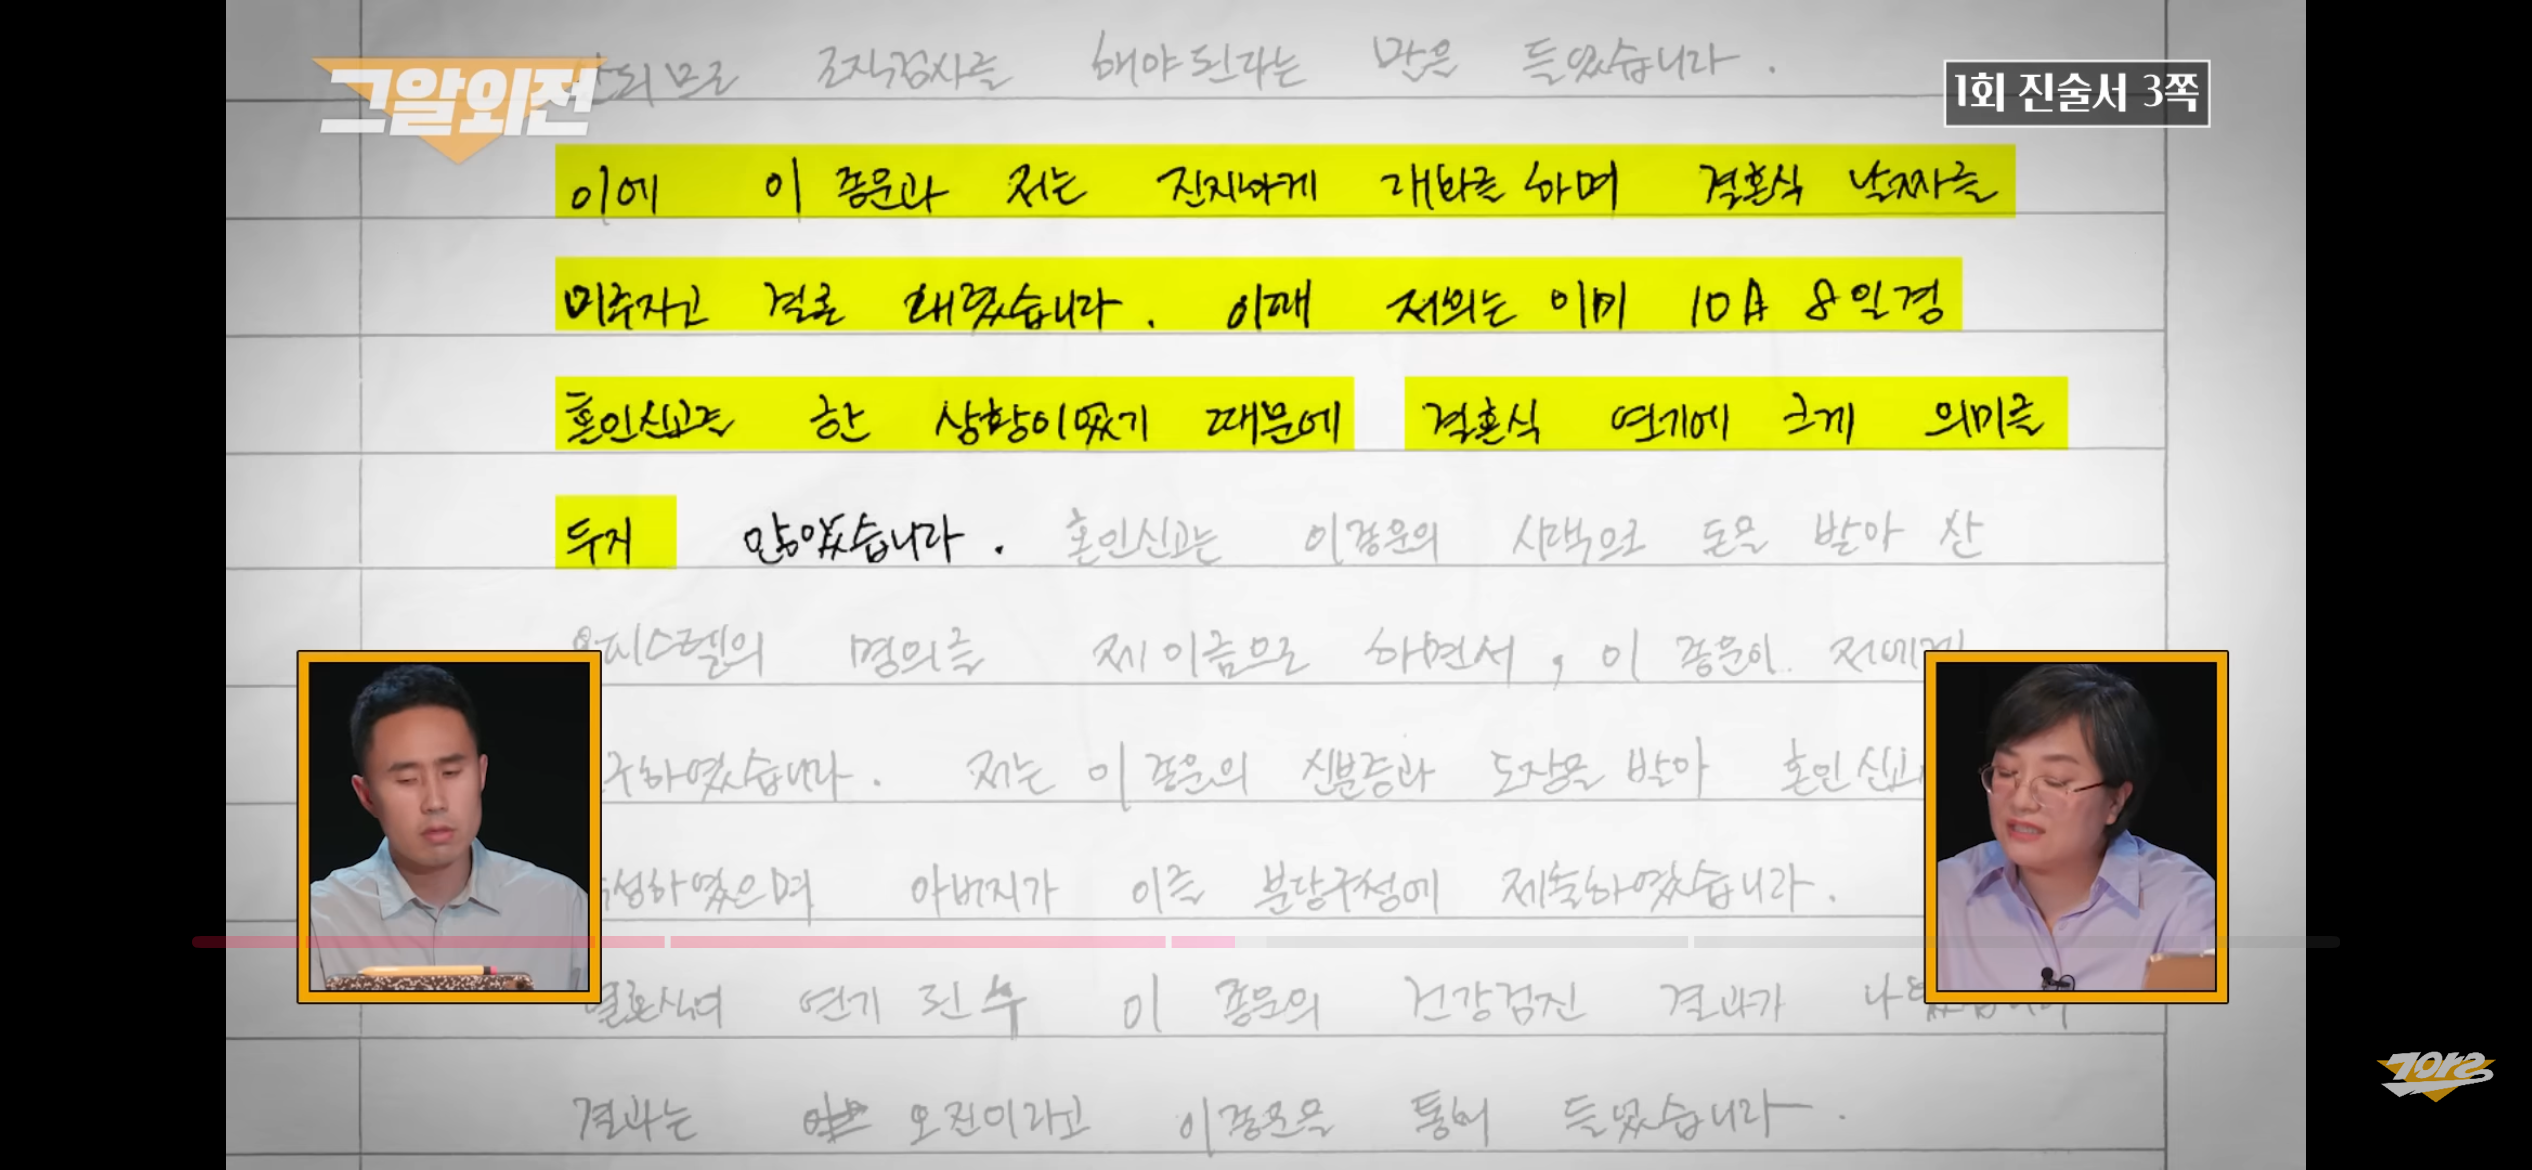 그알외전
1회 진술서 3쪽
조직검사를 해야된다는 말은 들었습니다.
이에 이 종운과 저는 진지하게 대화를 하며 결혼식 날짜를
미루자고 결론 내렸습니다. 이때 저희는 이미 10月 8일경
혼인신고를 한 상황이었기 때문에 결혼식 연기에 크게 의미를
두지 않았습니다. 혼인신고는 이종운의 시댁으로 돈을 받아 산
오피스텔의 명의를 제 이름으로 하면서, 이 종운이 저에게
하였습니다. 저는 이 종운의 신분증과 도장을 받아
하였으며 아버지가 이를 분당구청에 제출하였습니다.
연기 된 후 이 종운의 건강검진 결과가
결과는 오진이라고 이종운을 통해 들었습니다.
그알